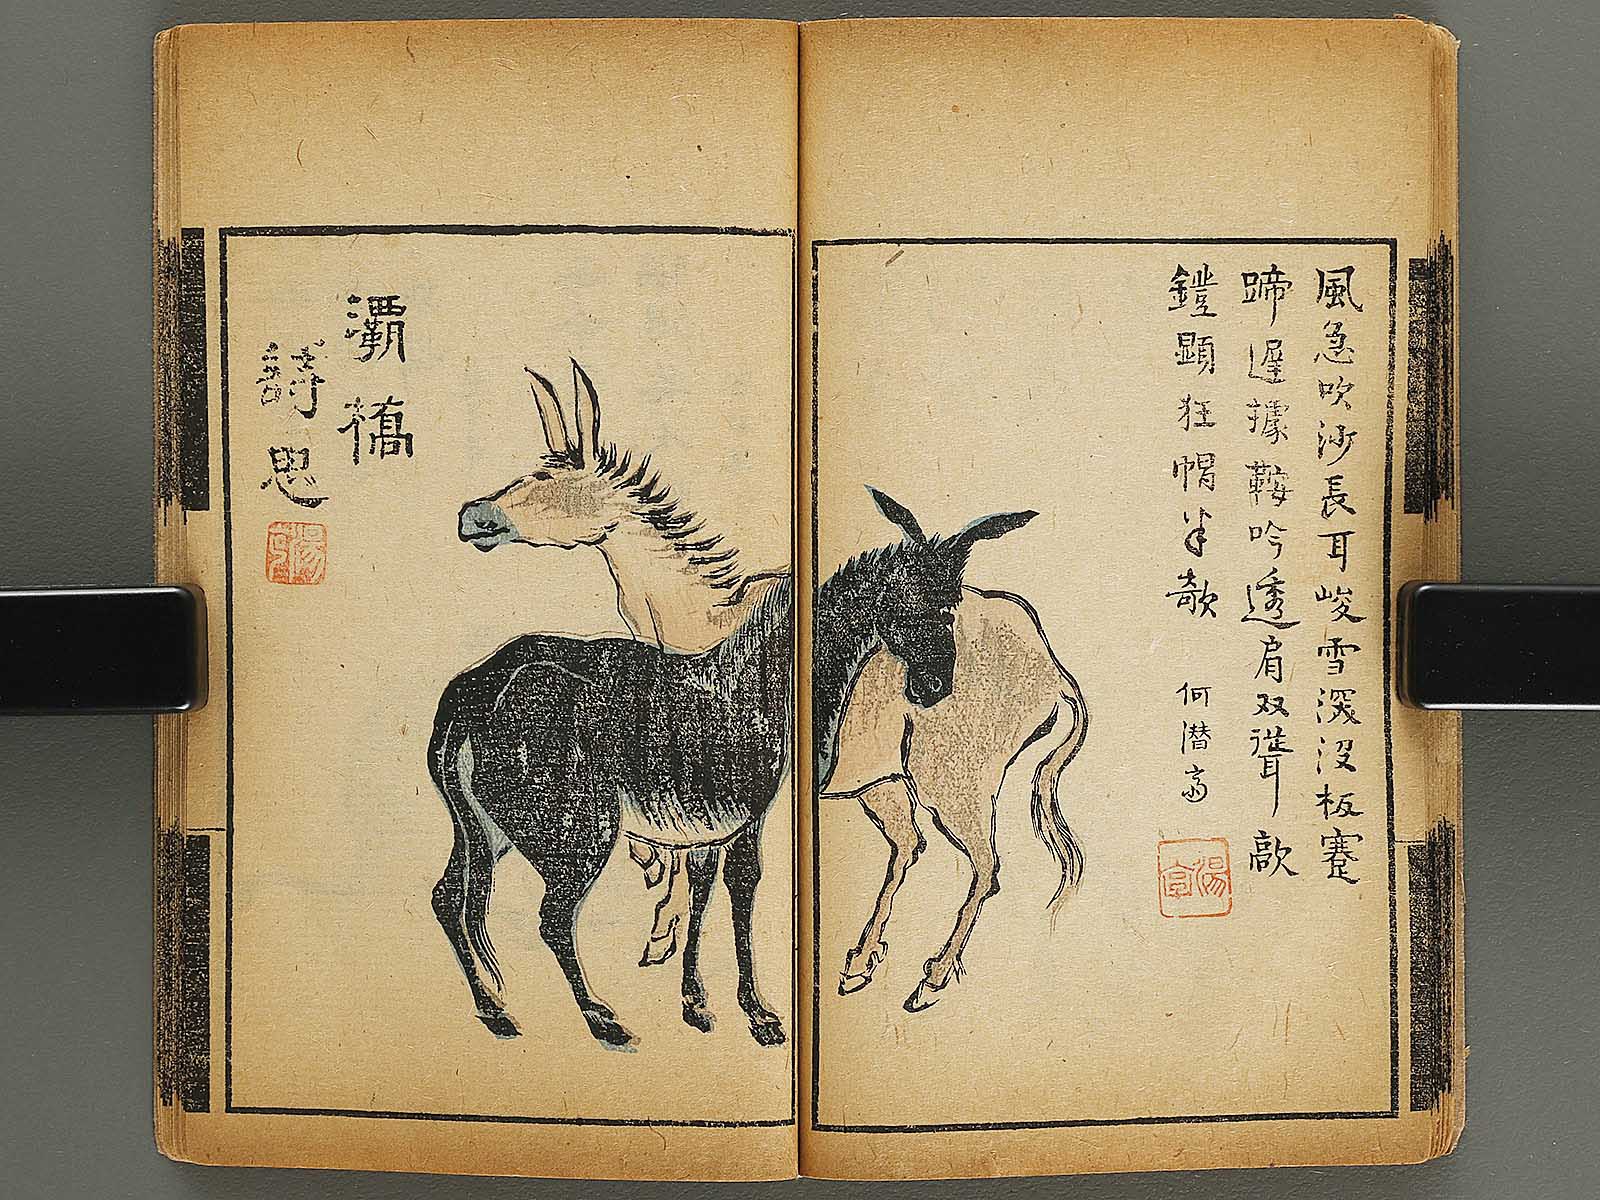 風急吹沙長耳峻雪深没板蹇
蹄遲據鞍吟透肩双聳敲
鐙顕狂帽半欹
何潜
灞橋
詩思